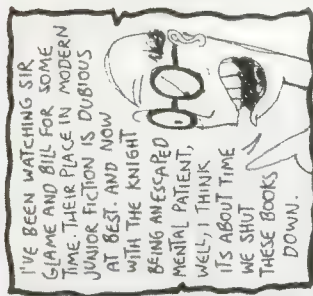 I'VE BEEN WATCHING SIR
GLAME AND BILL FOR SOME
TIME. THEIR PLACE IN MODERN
JUNIOR FICTION IS DUBIOUS
AT BEST. AND NOW
WITH THE KNIGHT
BEING AN ESCAPED
MENTAL PATIENT,
WELL, I THINK
ITS ABOUT TIME
WE SHUT
THESE BOOKS
DOWN.